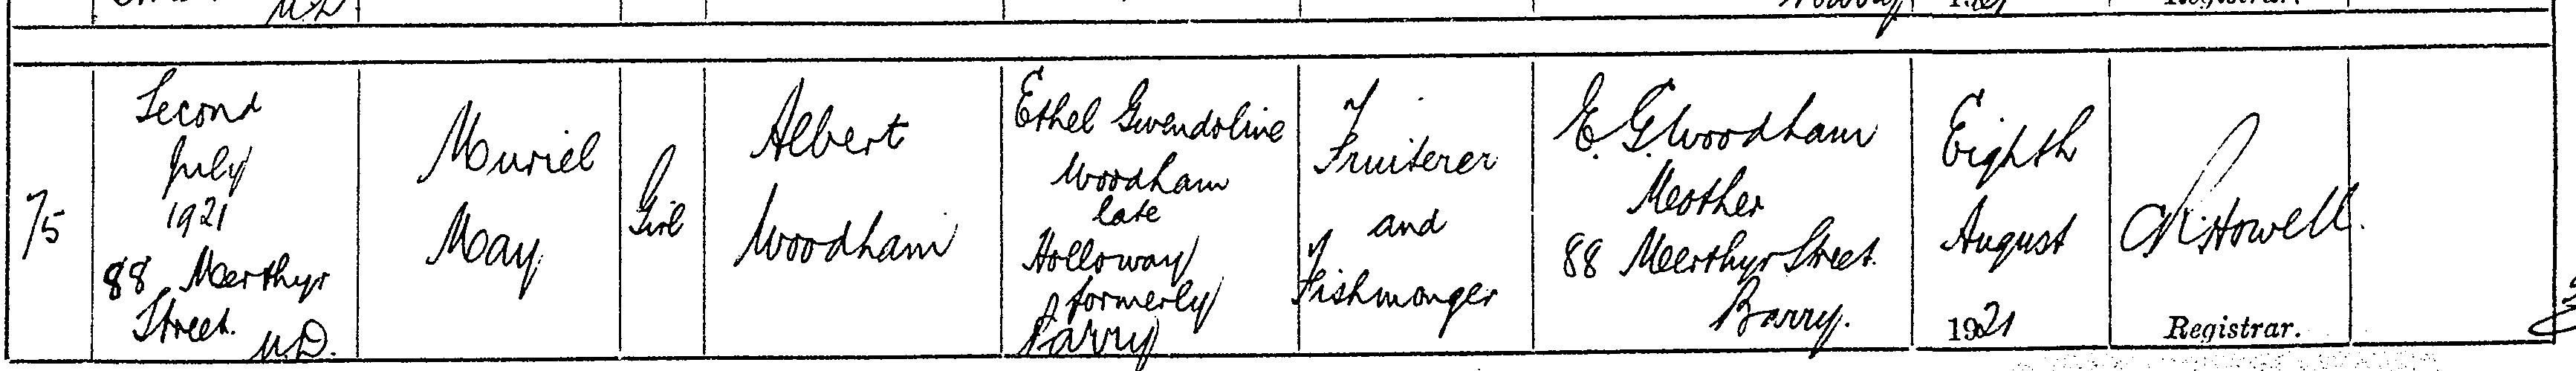 75
Second
July
1921
88 Merthyr
Street.
U.D.
Muriel
May
Girl
Albert
Woodham
Ethel Gwendoline
Woodham
late
Holloway
formerly
Parry
Fruiterer
and
Fishmonger
E. G. Woodham
Mother
88 Merthyr Street.
Barry.
Eighth
August
1921
Howell.
Registrar.